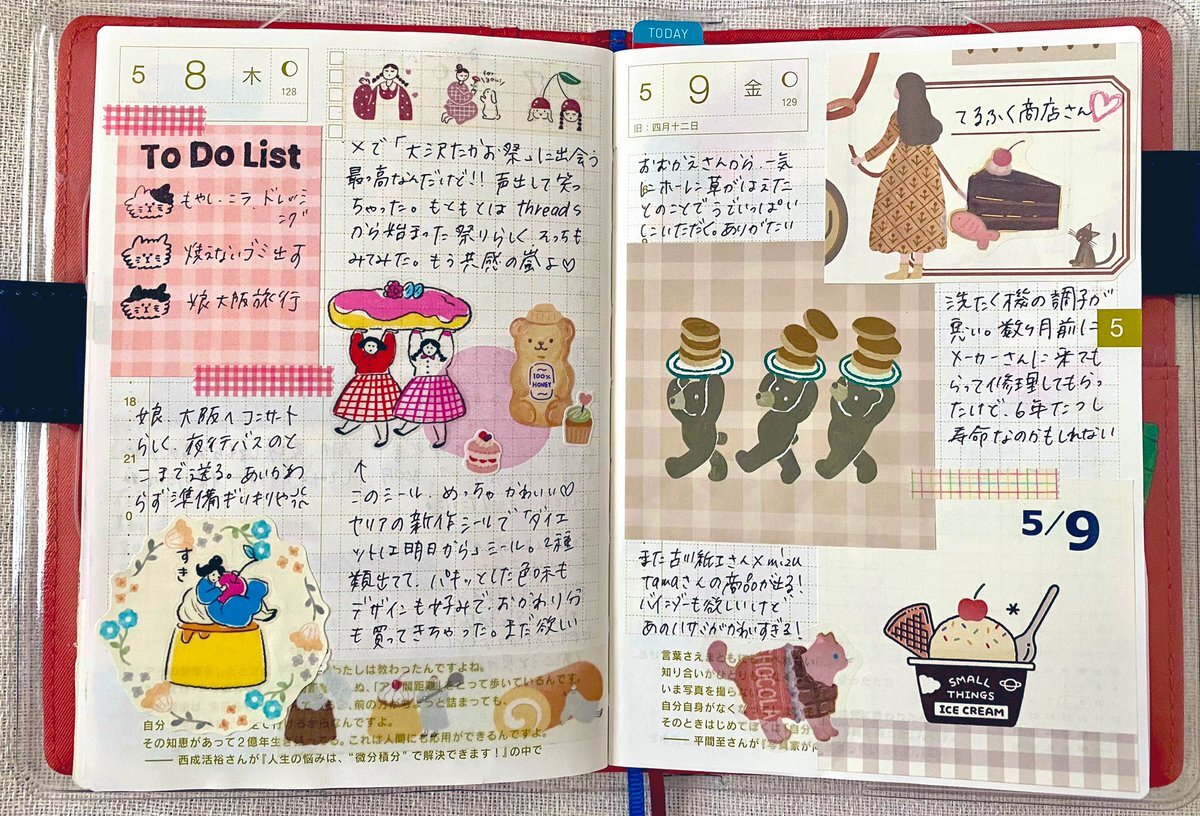 TODAY
5 8 木
128
To Do List
もやし、ニラ、ドレッシ
ング
燃えないゴミ出す
娘 大阪旅行
for you!
Xで「大沢たかお祭」に出会う
最っ高なんだけど!! 声出して笑っ
ちゃった。もともとは threads
から始まった祭りらしく、そっちも
みてみた。もう共感の嵐よ♡
100%
HONEY
18
娘、大阪へコンサート
らしく、夜行バスのと
こまで送る。あいかわ
21
らず準備ギリギリやった
0
すき
↑
このシール、めっちゃかわいい♡
セリアの新作シールで「ダイエ
ットは明日から」シール。2種
類出てて、パキッとした色味も
デザインも好みで、おかわり分
も買ってきちゃった。まだ欲しい
わたしは教わったんですよね。
ぬ、「ア
距離」をとって歩いているんです。
、前の方がちょっと詰まっても、
自分
その知恵があって2億年生き
る。これは人間にも応用ができるんですよ。
── 西成活裕さんが『人生の悩みは、“微分積分”で解決できます!』の中で
5 9 金
129
旧:四月十二日
てるふく商店さん♡
おむかえさんから、一気
にホーレン草がはえた
とのことでうでいっぱい
にいただく。ありがたい
洗たく機の調子が
悪い。数ヶ月前に
5
メーカーさんに来ても
らって修理してもらっ
たけど、6年たつし
寿命なのかもしれない
5/9
また古川紙工さん×mizu
tamaさんの商品が出る!
バインダーも欲しいけど
あの
がかわいすぎる!
SMALL
THINGS
ICE CREAM
CHOCOLA
言葉さえまともに
知り合いがひとり
いま写真を撮らな
自分自身がなく
そのときはじめて
── 平間至さんが『写真家が